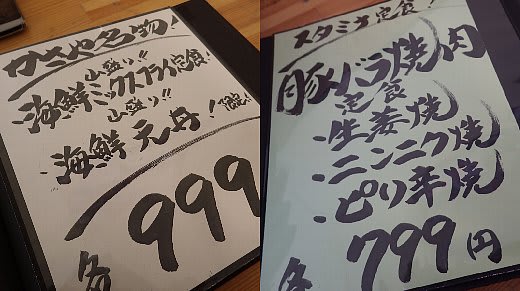 かさや名物!
山盛り!!
・海鮮ミックスフライ定食!
山盛り!!
・海鮮元丹!
各999
スタミナ定食!
豚バラ焼肉
定食
・生姜焼
・ニンニク焼
・ピリ辛焼
各799円